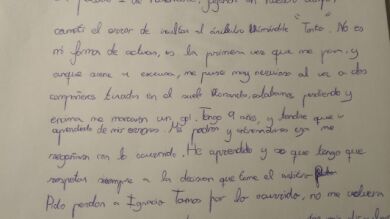 cometí el error de insultar al árbitro llamándole "Tonto". No es
mi forma de actuar, es la primera vez que me pasa, y
aunque suene a excusa, me puse muy nervioso al ver a dos
compañeros tirados en el suelo llorando, estábamos perdiendo y
encima me marcaron un gol. Tengo 9 años, y tendré que ir
aprendiendo de mis errores. Mis padres y entrenadores
con lo ocurrido. He aprendido y sé que tengo que
respetar siempre a la decisión que tome el árbitro
Pido perdón a Ignacio Tamos por lo ocurrido, no me volverá